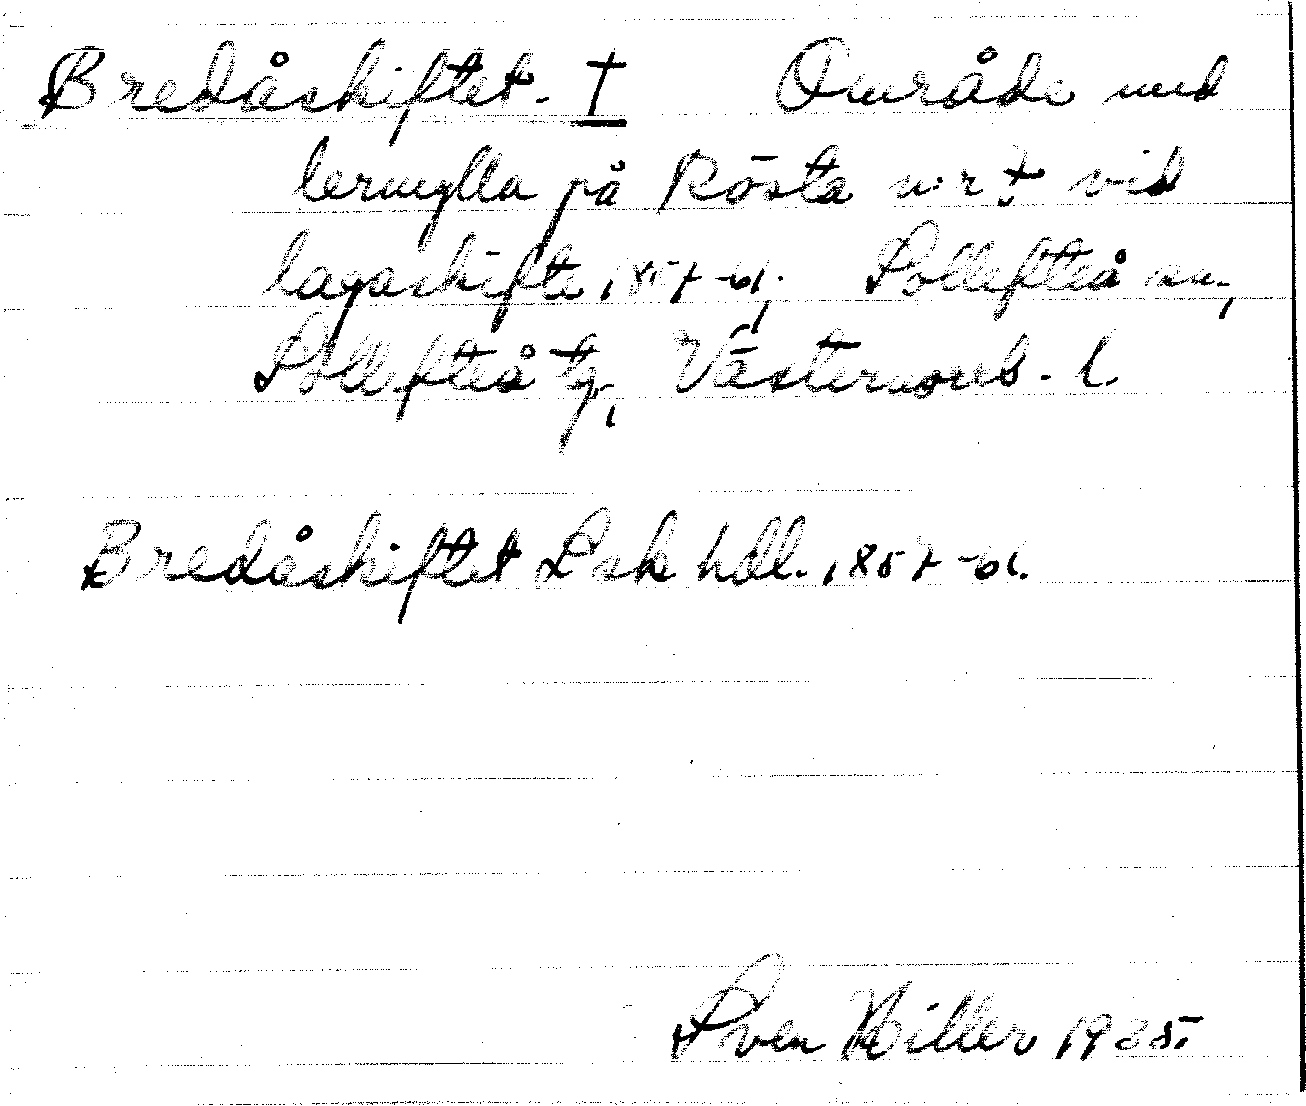 Bredåskiftet. † Område med
lermylla på Rösta n:r 7 vid
lagaskifte 1857-61. Sollefteå sn,
Sollefteå tg, Västernorrl. l.
Bredåskiftet Lsk hdl. 1857-61.
Sven Hiller 1935.